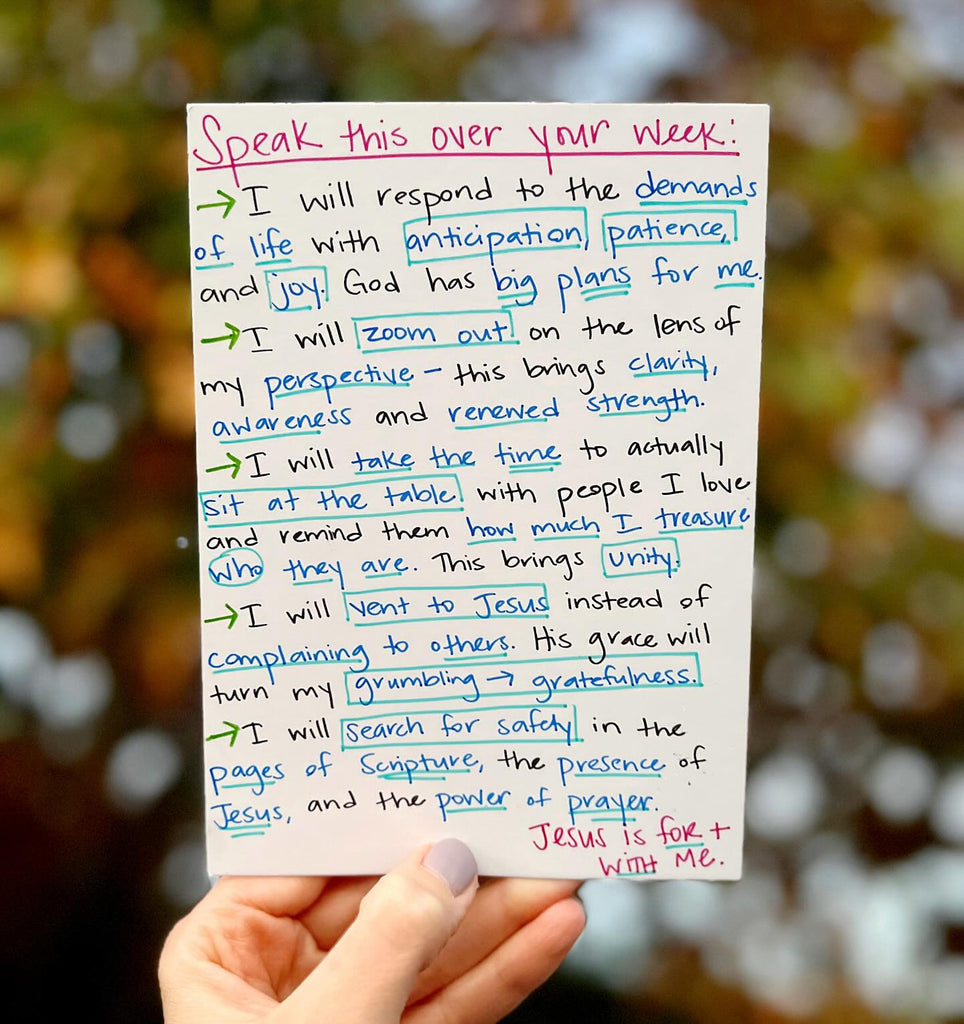 Speak this over your week:
→ I will respond to the demands
of life with anticipation, patience,
and joy. God has big plans for me.
→ I will zoom out on the lens of
my perspective - this brings clarity,
awareness and renewed strength.
→ I will take the time to actually
sit at the table with people I love
and remind them how much I treasure
who they are. This brings unity.
→ I will vent to Jesus instead of
complaining to others. His grace will
turn my grumbling → gratefulness.
→ I will search for safety in the
pages of Scripture, the presence of
Jesus, and the power of prayer.
Jesus is FOR +
WITH Me.